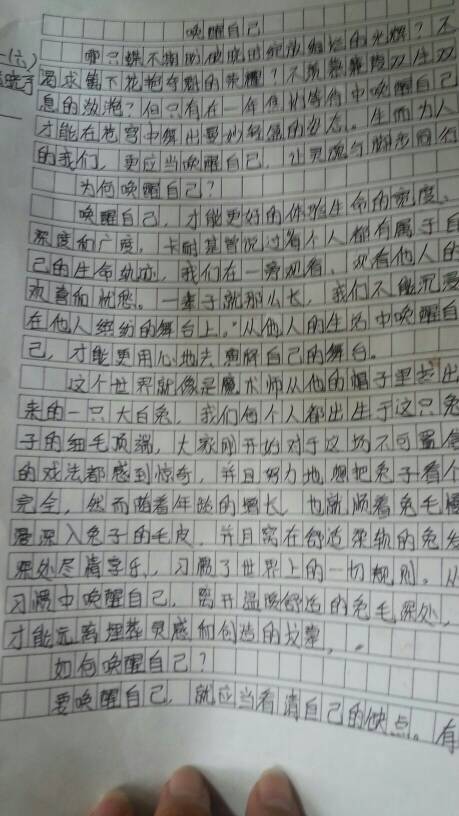 唤醒自己
哪只蝶不期盼破茧时绽放绚烂的光辉？不
渴求飞下花抱夺魁的荣耀？不
息的激滟？但只有在一年年的等待中唤醒自己
才能在苍穹中舞出曼妙轻盈的姿态。生而为人
的我们，更应当唤醒自己，让灵魂与脚步同行
为何唤醒自己？
唤醒自己，才能更好的体验生命的宽度、
深度和广度。卡耐基曾说过每个人都有属于自
己的生命轨迹，我们在一旁观看，观看他人的
欢喜和忧愁。一辈子就那么长，我们不能沉浸
在他人缤纷的舞台上。从他人的生活中唤醒自
己，才能更用心地去 自己的舞台。
这个世界就像是魔术师从他的帽子里变出
来的一只大白兔，我们每个人都出生于这只兔
子的细毛顶端，大家刚开始对于这场不可置信
的戏法都感到惊奇，并且努力地想把兔子看个
完全，然而随着年龄的增长，也就顺着兔毛慢
慢深入兔子的毛皮，并且窝在舒适柔软的兔毛
深处尽情享乐，习惯了世界上的一切规则。从
习惯中唤醒自己，离开温暖舒适的兔毛深处，
才能远离埋葬灵感和创造的坟墓。
如何唤醒自己？
要唤醒自己，就应当看清自己的缺点。有